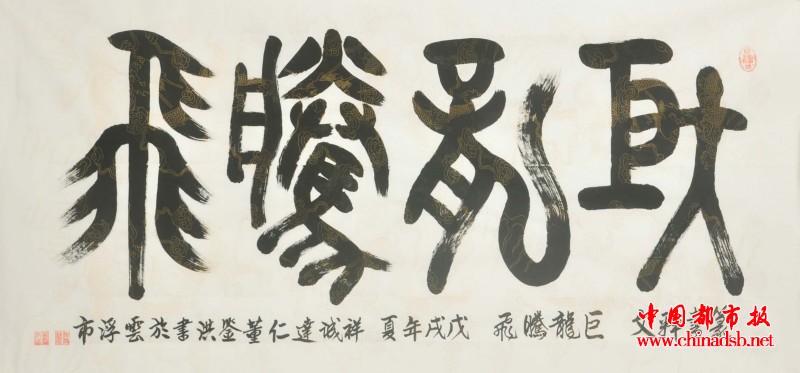 巨龍騰飛
文 巨龍騰飛 戊戌年夏 祥誠達仁董洪書於雲浮市
中国都市报
www.chinadsb.net